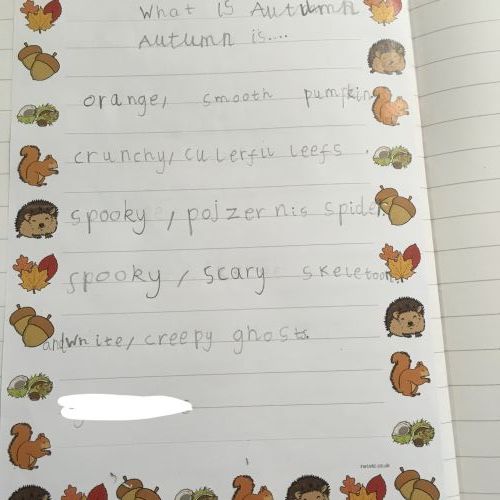 What is Autumn
Autumn is....
orange, smooth pumpkin
crunchy, culerfil leefs .
spooky, pojzernis spider
spooky, scary skeletoon
and white, creepy ghosts.